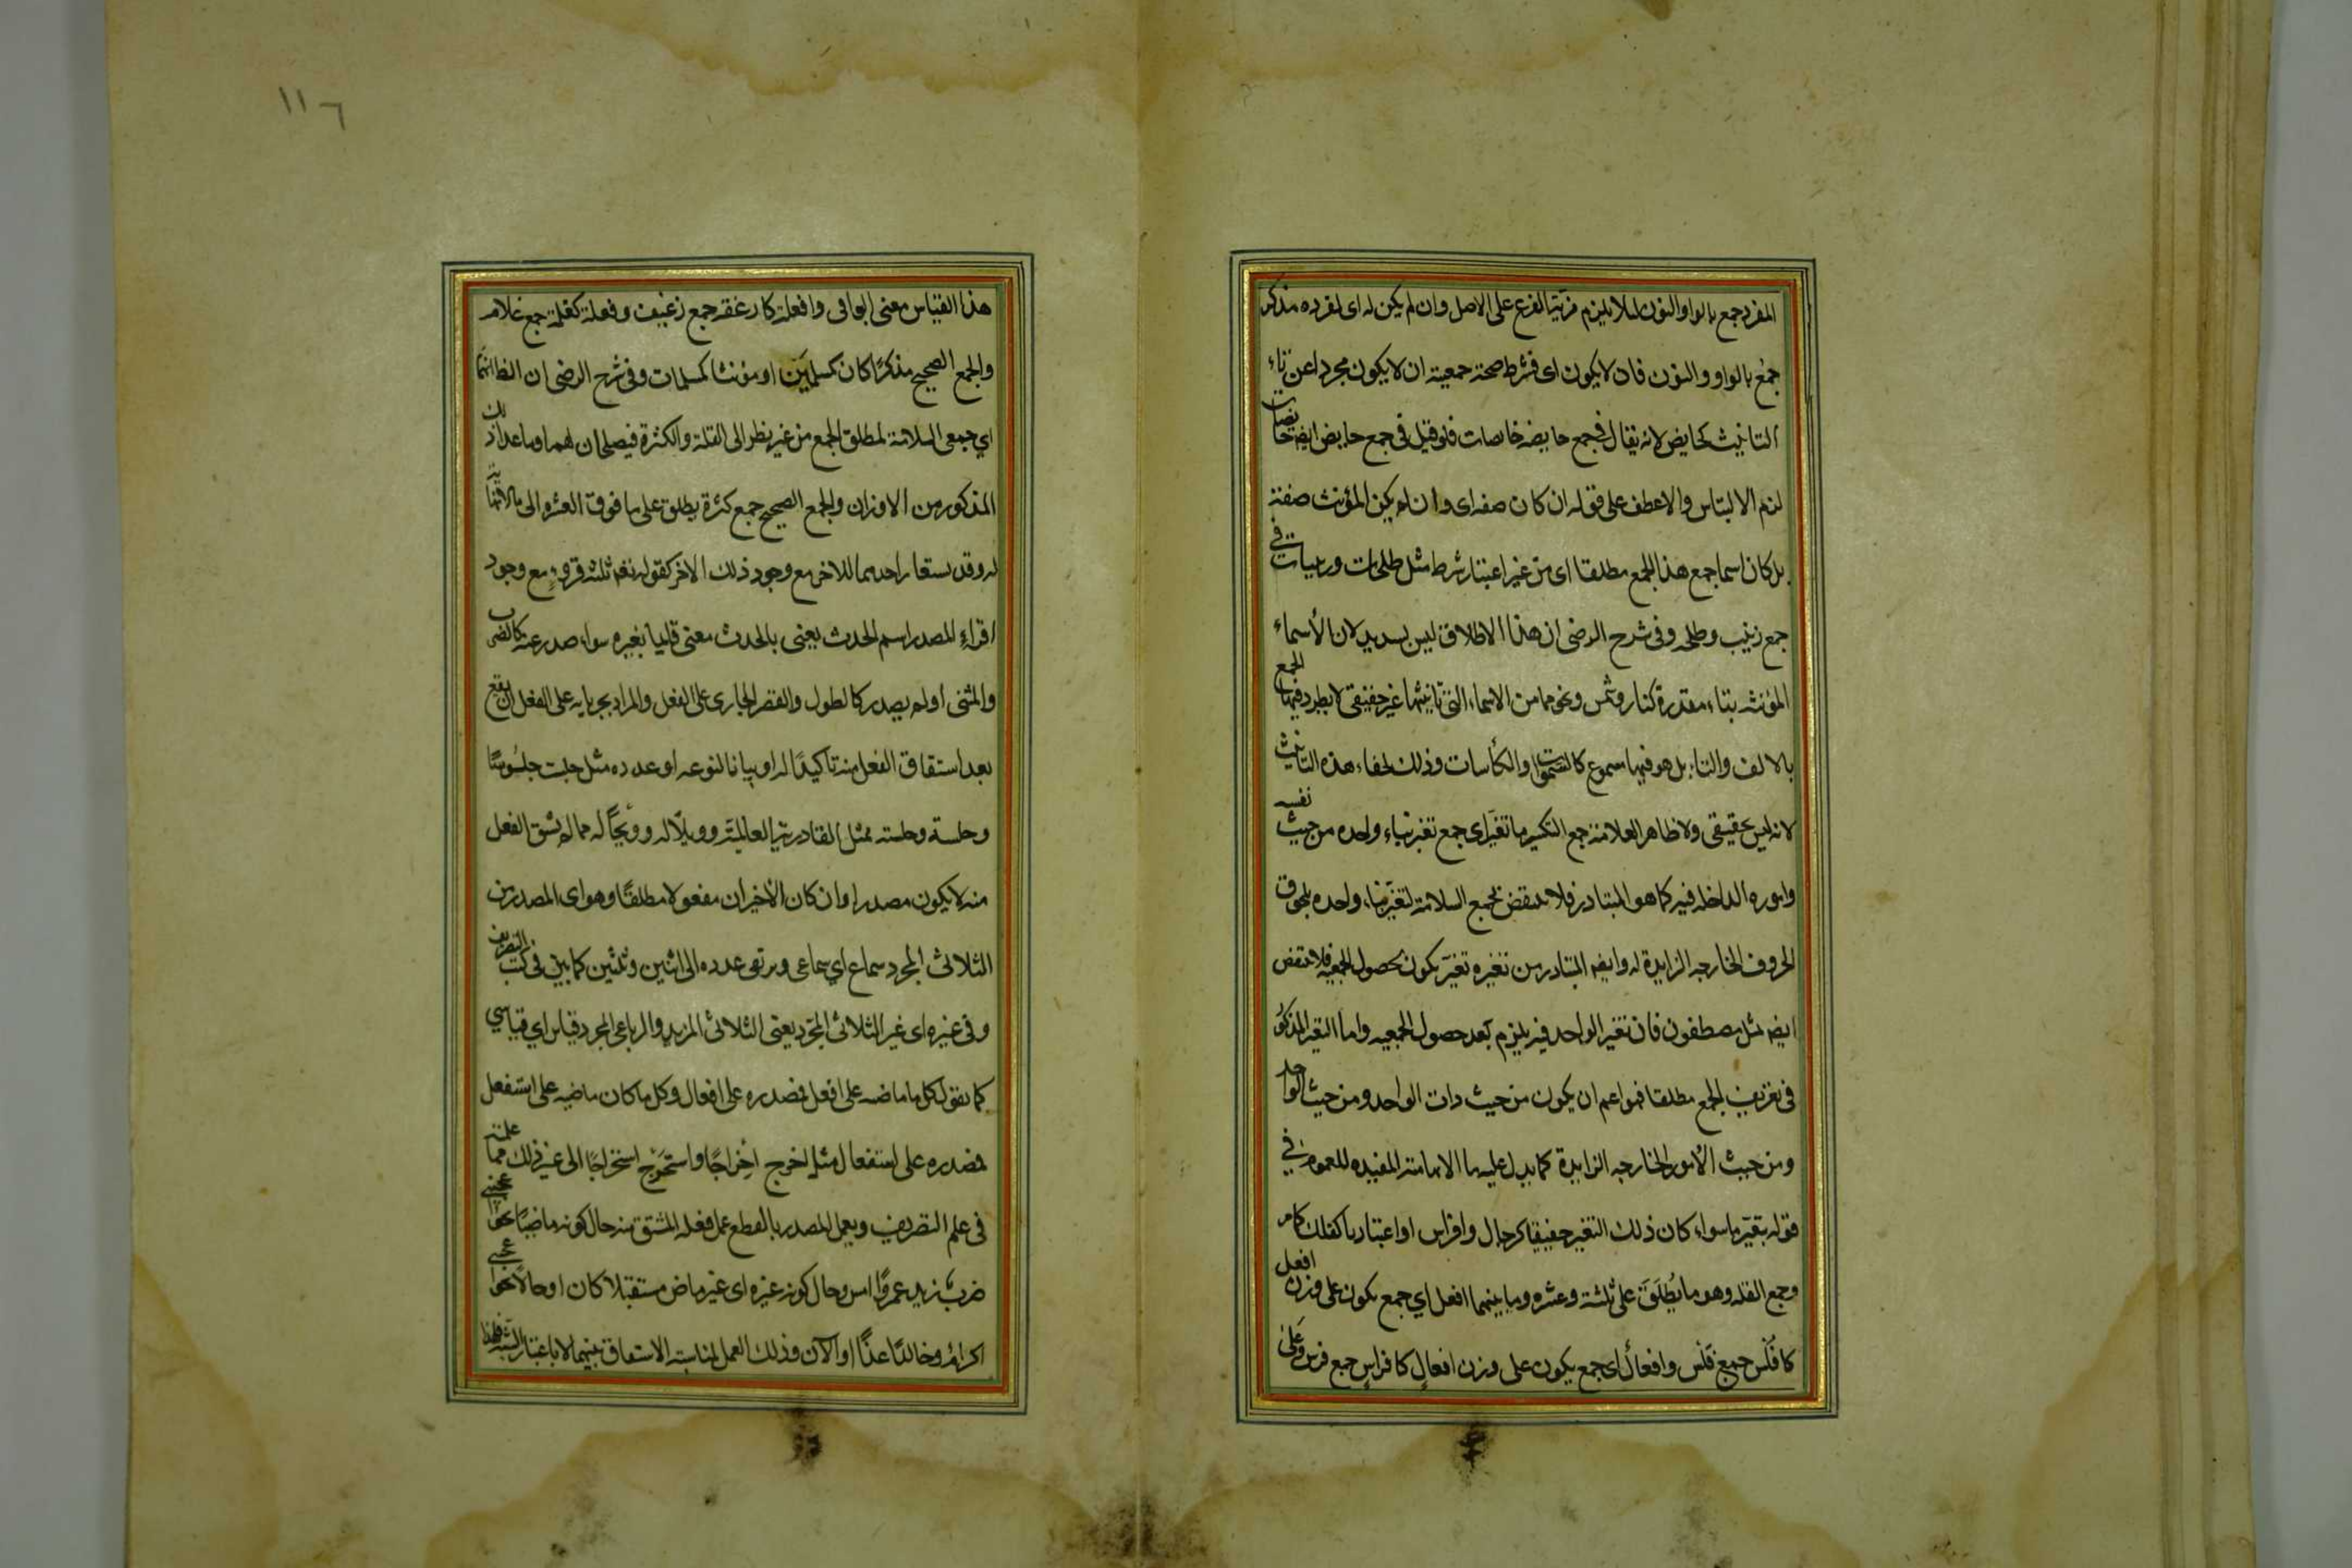 المفرد جمع بالواو والنون لئلا يلزم مزية الفرع على الاصل وان لم يكن له اى لمفرده مذكر
جمع بالواو والنون فان لا يكون اى فشرط صحة جمعيته ان لا يكون مجردا عن تاء
التانيث كحايض لانه يقال فى جمع حايضة حايضات فلو قيل فى جمع حايض ايضا حايضات
لزم الالتباس والا عطف على قوله ان كان صفه اى وان لم يكن المؤنث صفة
بل كان اسما جمع هذا الجمع مطلقا اى من غير اعتبار شرط مثل طلحات وزينبات فى
جمع زينب وطلحه وفى شرح الرضى ان هذا الاطلاق ليس بسديد لان الأسماء
المؤنثه بتاء مقدرة كنار وشمس ونحوهما من الاسماء التى تانيثها غير حقيقى لا يطرد فيها الجمع
بالالف والتاء بل هو فيها مسموع كالسموات والكأسات وذلك لخفاء هذه التانيث
لانه ليس بحقيقى ولا ظاهر العلامة جمع التكسير ما تغير اى جمع تغير بناء واحده من حيث نفسه
واموره الداخله فيه كما هو المتبادر فلا ينتقض بجمع السلامة لتغير بناء واحده بلحوق
الحروف الخارجه الزايدة له وايضا المتبادر من تغيره تغير يكون بحصول الجمعيه فلا ينتقض
ايضا بمثل مصطفون فان تغير الواحد فيه يلزم بعد حصول الجمعيه واما التغير المذكور
فى تعريف الجمع مطلقا فهو اعم ان يكون من حيث ذات الواحد ومن حيث الواحد
ومن حيث الأمور الخارجه الزايدة كما يدل عليه ما الابهامية المفيده للعموم فى
قوله بتغير ما سواء كان ذلك التغير حقيقيا كرجال وافراس او اعتباريا كفلك كامر
وجمع القله وهو ما يُطلق على ثلثة وعشره وما بينهما افعل اى جمع يكون على وزن افعل
كافلس جمع فلس وافعال اى جمع يكون على وزن افعال كافراس جمع فرس وعلى
١١٦
هذا القياس معنى البواقى وافعلة كارغفة جمع رغيف وفعلة كغلمة جمع غلام
والجمع الصحيح مذكرًا كان كمسلمين او مؤنثا كمسلمات وفى شرح الرضى ان الظ انهما
اي جمعى السلامة لمطلق الجمع من غير نظر الى القلة والكثرة فيصلحان لهما وما عدا ذلك
المذكور من الاوزان والجمع الصحيح جمع كثرة يطلق على ما فوق العشره الى ما لا نهاية
له وقد يستعار احدهما للاخر مع وجود ذلك الاخر كقوله تعه ثلثة قروء مع وجود
اقراء المصدر اسم الحدث يعنى بالحدث معنى قايما بغيره سواء صدر عنه كالضرب
والمشى او لم يصدر كالطول والقصر الجارى على الفعل والمراد بجريانه على الفعل ان يقع
بعد اشتقاق الفعل منه تاكيدًا له او بيانا لنوعه او عدده مثل جلست جلوسًا
وجلسة وجلسته فمثل القادرية العالمية وويلًا له وويحًا له مما لم يشتق الفعل
منه لا يكون مصدرا وان كان الأخيران مفعولا مطلقًا وهو اى المصدر من
الثلاثى المجرد سماع اي سماعى ويرتقى عدده الى اثنين وثلثين كما بين فى كتب التصريف
وفى غيره اى غير الثلاثى المجرد يعنى الثلاثى المزيد والرباعى المجرد قياس اي قياسي
كما تقول كل ما ماضيه على افعل فمصدره على افعال وكل ما كان ماضيه على استفعل
فمصدره على استفعال مثل اخرج اخراجًا واستخرج استخراجًا الى غير ذلك مما علمته
فى علم التصريف ويعمل المصدر بالقطع عمل فعله المشتق منه حال كونه ماضيًا نحو اعجبنى
ضرب زيد عمروًا امس وحال كونه غيره اى غير ماض مستقبلا كان او حالا نحو اعجبنى
اكرام وخالدًا غدًا او الآن وذلك العمل لمناسبة الاشتقاق بينهما لا باعتبار الشبه فلهذا